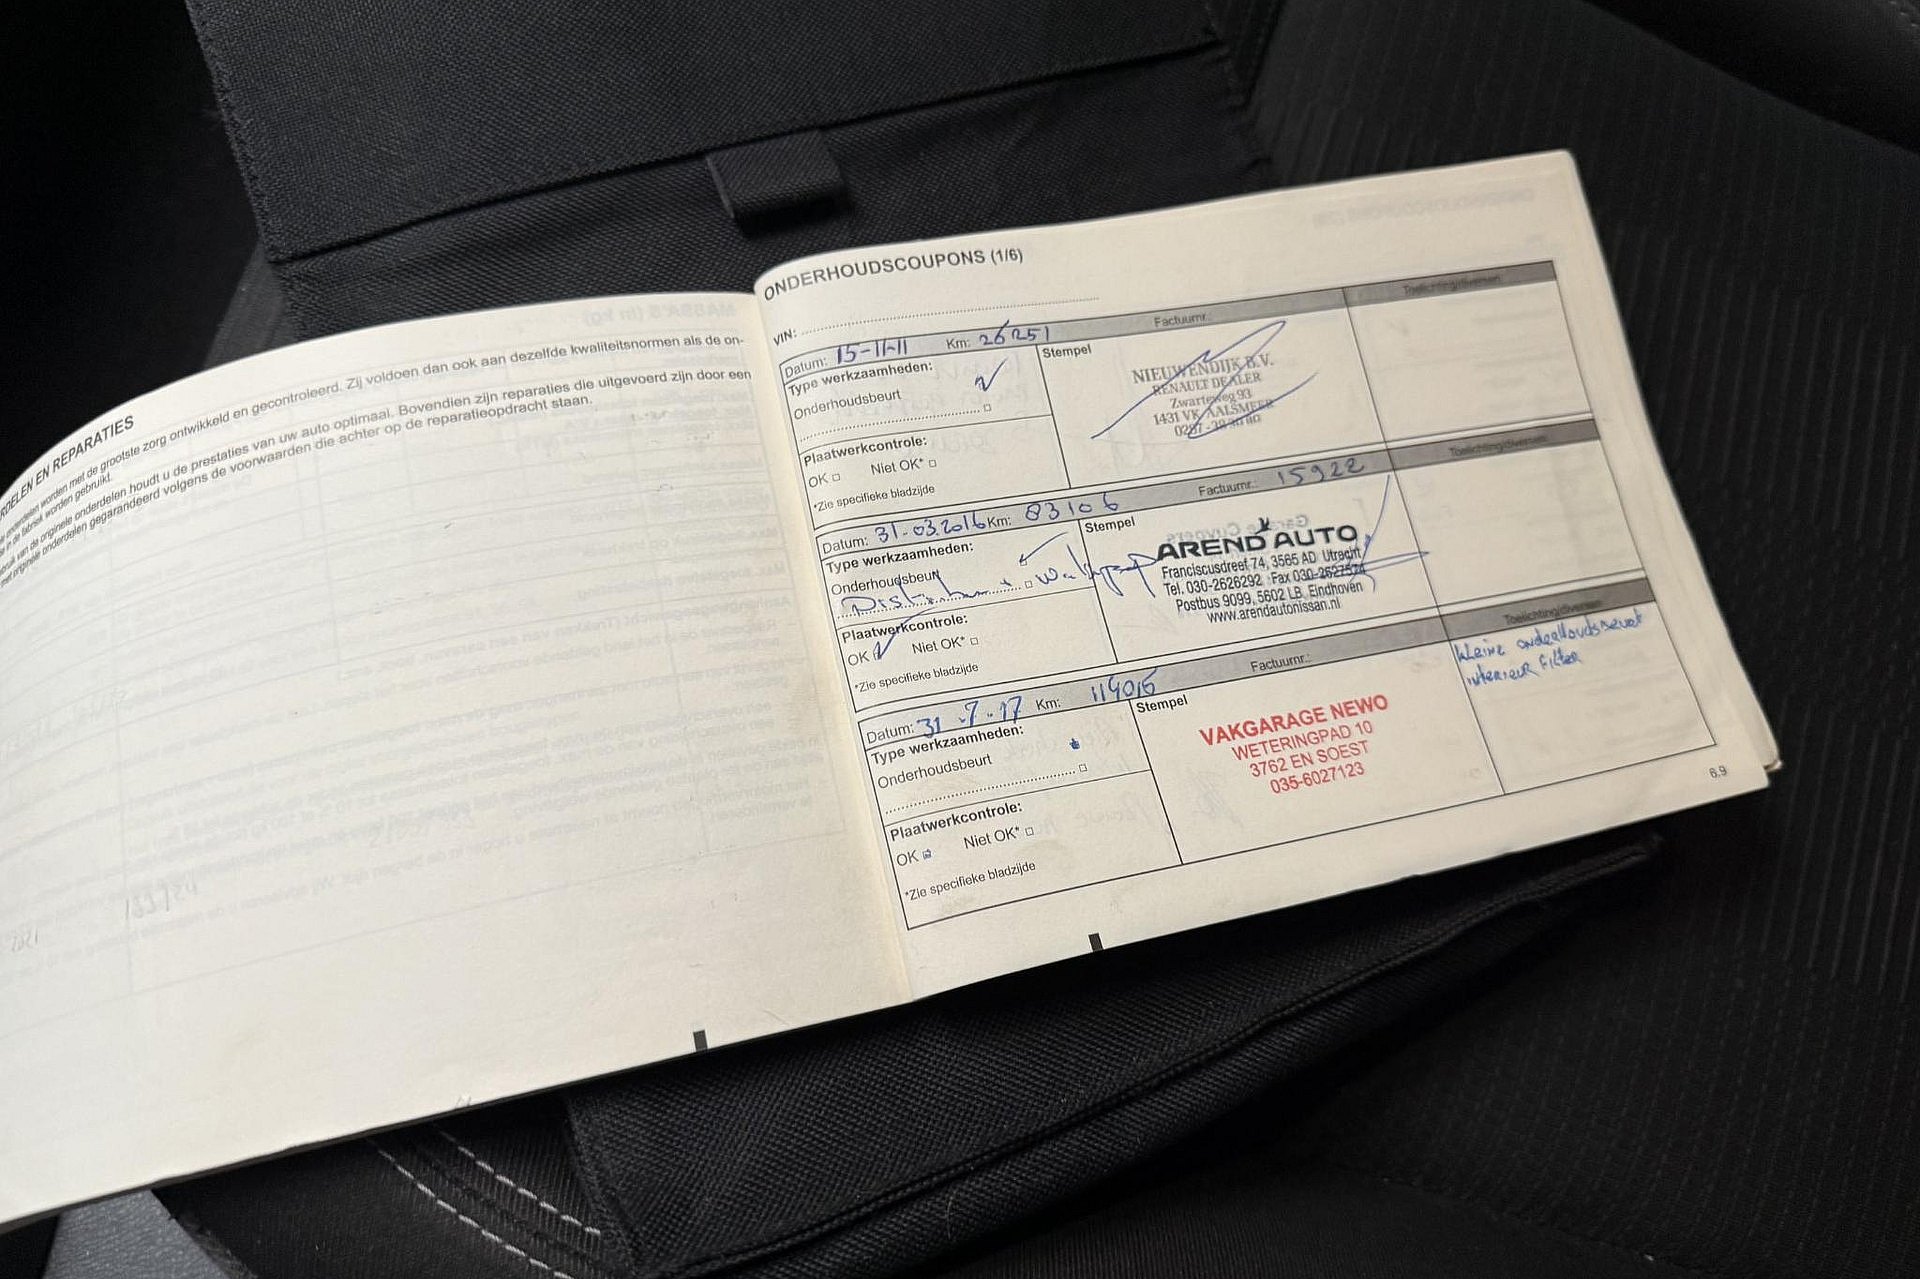 RDELEN EN REPARATIES
onderdelen worden met de grootste zorg ontwikkeld en gecontroleerd. Zij voldoen dan ook aan dezelfde kwaliteitsnormen als de on-
in de fabriek worden gebruikt.
van de originele onderdelen houdt u de prestaties van uw auto optimaal. Bovendien zijn reparaties die uitgevoerd zijn door een
met originele onderdelen gegarandeerd volgens de voorwaarden die achter op de reparatieopdracht staan.
ONDERHOUDSCOUPONS (1/6)
VIN:
Datum: 15-11-11 Km: 26251 Factuurnr.: Toelichting/diversen
Type werkzaamheden:
Onderhoudsbeurt
Plaatwerkcontrole:
OK Niet OK*
*Zie specifieke bladzijde
Stempel
NIEUWENDIJK B.V.
RENAULT DEALER
Zwarteweg 93
1431 VK AALSMEER
Datum: 31-03.2016 Km: 83106 Factuurnr.: 15922 Toelichting/diversen
Type werkzaamheden:
Onderhoudsbeurt
Plaatwerkcontrole:
OK Niet OK*
*Zie specifieke bladzijde
Stempel
AREND AUTO
Franciscusdreef 74, 3565 AD Utrecht
Tel. 030-2626292 Fax 030-2627574
Postbus 9099, 5602 LB Eindhoven
www.arendautonissan.nl
Datum: 31-7-17 Km: 114016 Factuurnr.: Toelichting/diversen
Type werkzaamheden:
Onderhoudsbeurt
Plaatwerkcontrole:
OK Niet OK*
*Zie specifieke bladzijde
Stempel
VAKGARAGE NEWO
WETERINGPAD 10
3762 EN SOEST
035-6027123
kleine onderhoudsbeurt
interieur filter
6.9